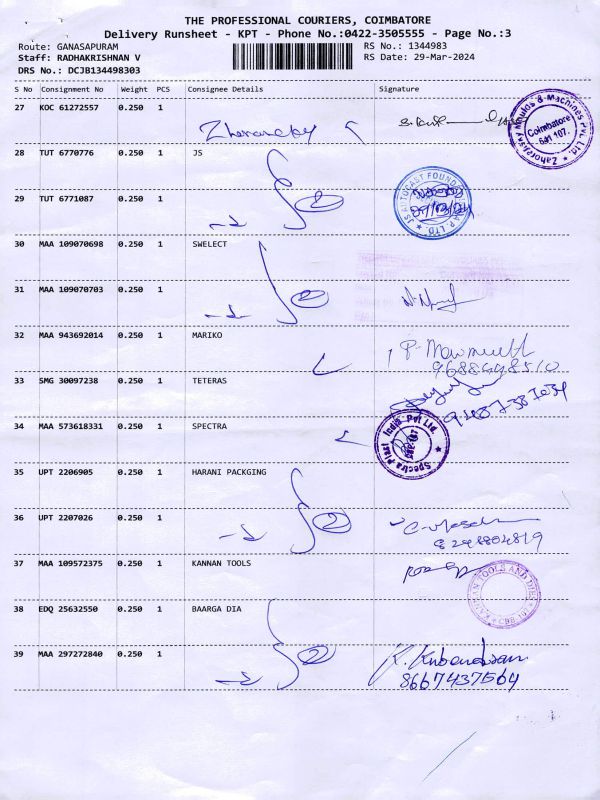 THE PROFESSIONAL COURIERS, COIMBATORE
Delivery Runsheet - KPT - Phone No.:0422-3505555 - Page No.:3
Route: GANASAPURAM RS No.: 1344983
Staff: RADHAKRISHNAN V RS Date: 29-Mar-2024
DRS No.: DCJB134498303
S No Consignment No Weight PCS Consignee Details Signature
27 KOC 61272557 0.250 1
28 TUT 6770776 0.250 1 JS
29 TUT 6771087 0.250 1
2
30 MAA 109070698 0.250 1 SWELECT
31 MAA 109070703 0.250 1
2
32 MAA 943692014 0.250 1 MARIKO
9688648510
33 SMG 30097238 0.250 1 TETERAS
34 MAA 573618331 0.250 1 SPECTRA
Spectra Plast India Pvt Ltd
35 UPT 2206905 0.250 1 HARANI PACKGING
36 UPT 2207026 0.250 1
2
8248804819
37 MAA 109572375 0.250 1 KANNAN TOOLS
KANNAN TOOLS AND DIES
38 EDQ 25632550 0.250 1 BAARGA DIA
39 MAA 297272840 0.250 1
2
8667437564